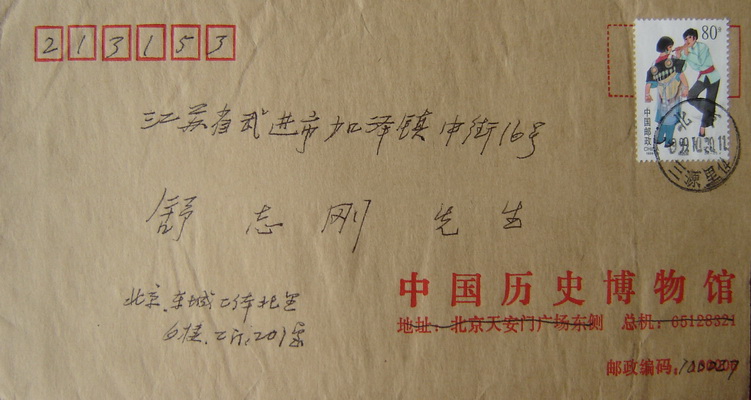 213153
80分
中国邮政
CHINA
江苏省武进市加泽镇中街16号
北京
1999.10.20.11
三源里
舒志刚 先生
北京.东城工体北里
2斤.201室
中国历史博物馆
地址：北京天安门广场东侧 总机：65128321
邮政编码：100027